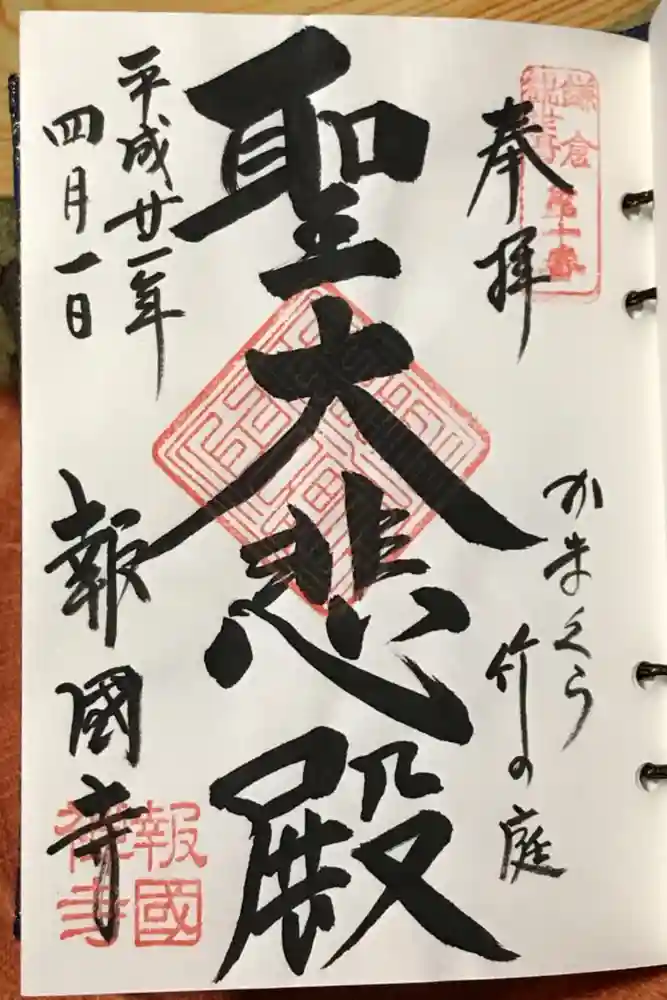 奉拝
鎌倉
第十番
かまくら
竹の庭
聖大悲殿
平成廿一年
四月一日
報國寺
報國
禅寺